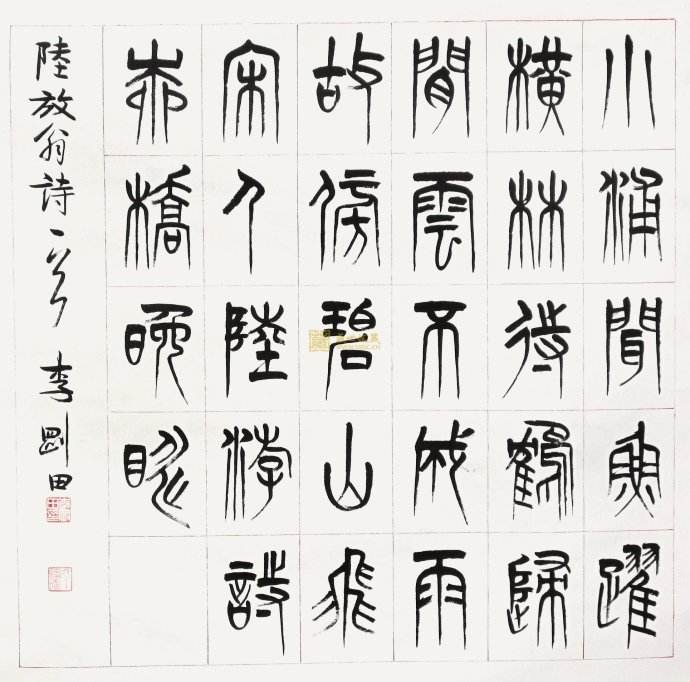 小浦聞魚躍
橫林待鶴歸
閒雲不成雨
故傍碧山飛
宋人陸游詩
柳橋晚眺
陸放翁詩一首 李剛田